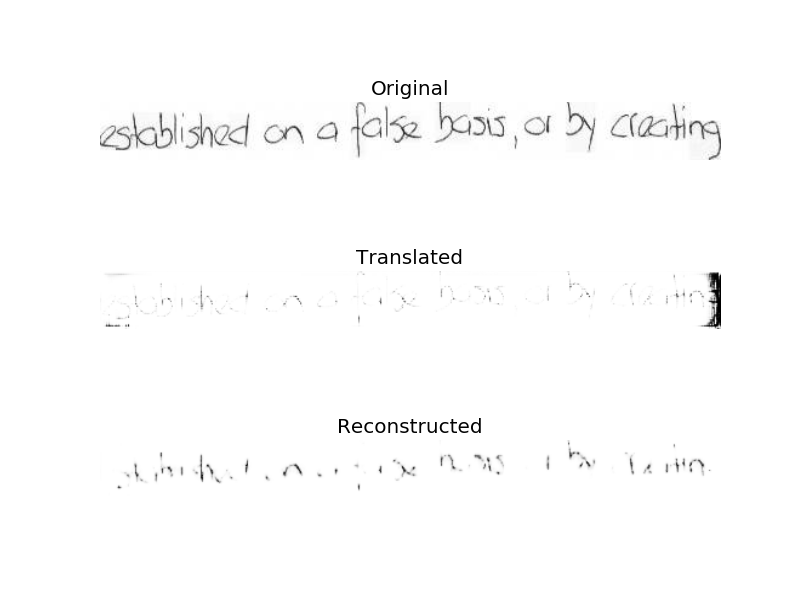 Original
established on a false basis, or by creating
Translated
established on a false basis, or by creating
Reconstructed